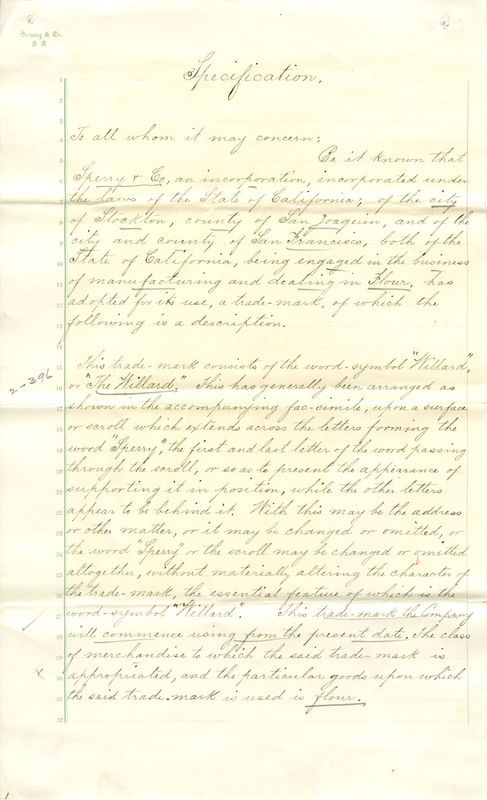 Dewey & Co.
S. F.
2
Specification.
To all whom it may concern:
Be it known that
Sperry & Co, an incorporation, incorporated under
the laws of the State of California; of the city
of Stockton, county of San Joaquin, and of the
city and county of San Francisco, both of the
State of California, being engaged in the business
of manufacturing and dealing in Flour, has
adopted for its use, a trade-mark, of which the
following is a description.
This trade-mark consists of the word-symbol "Willard",
or "The Willard." This has generally been arranged as
shown in the accompanying fac-simile, upon a surface
or scroll which extends across the letters forming the
word "Sperry", the first and last letter of the word passing
through the scroll, or so as to present the appearance of
supporting it in position, while the other letters
appear to be behind it. With this may be the address
or other matter, or it may be changed or omitted, or
the word "Sperry" or the scroll may be changed or omitted
altogether, without materially altering the character of
the trade-mark, the essential feature of which is the
word-symbol "Willard". This trade-mark the Company
will commence using from the present date, The class
of merchandise to which the said trade-mark is
appropriated, and the particular goods upon which
the said trade-mark is used is flour.
2-396